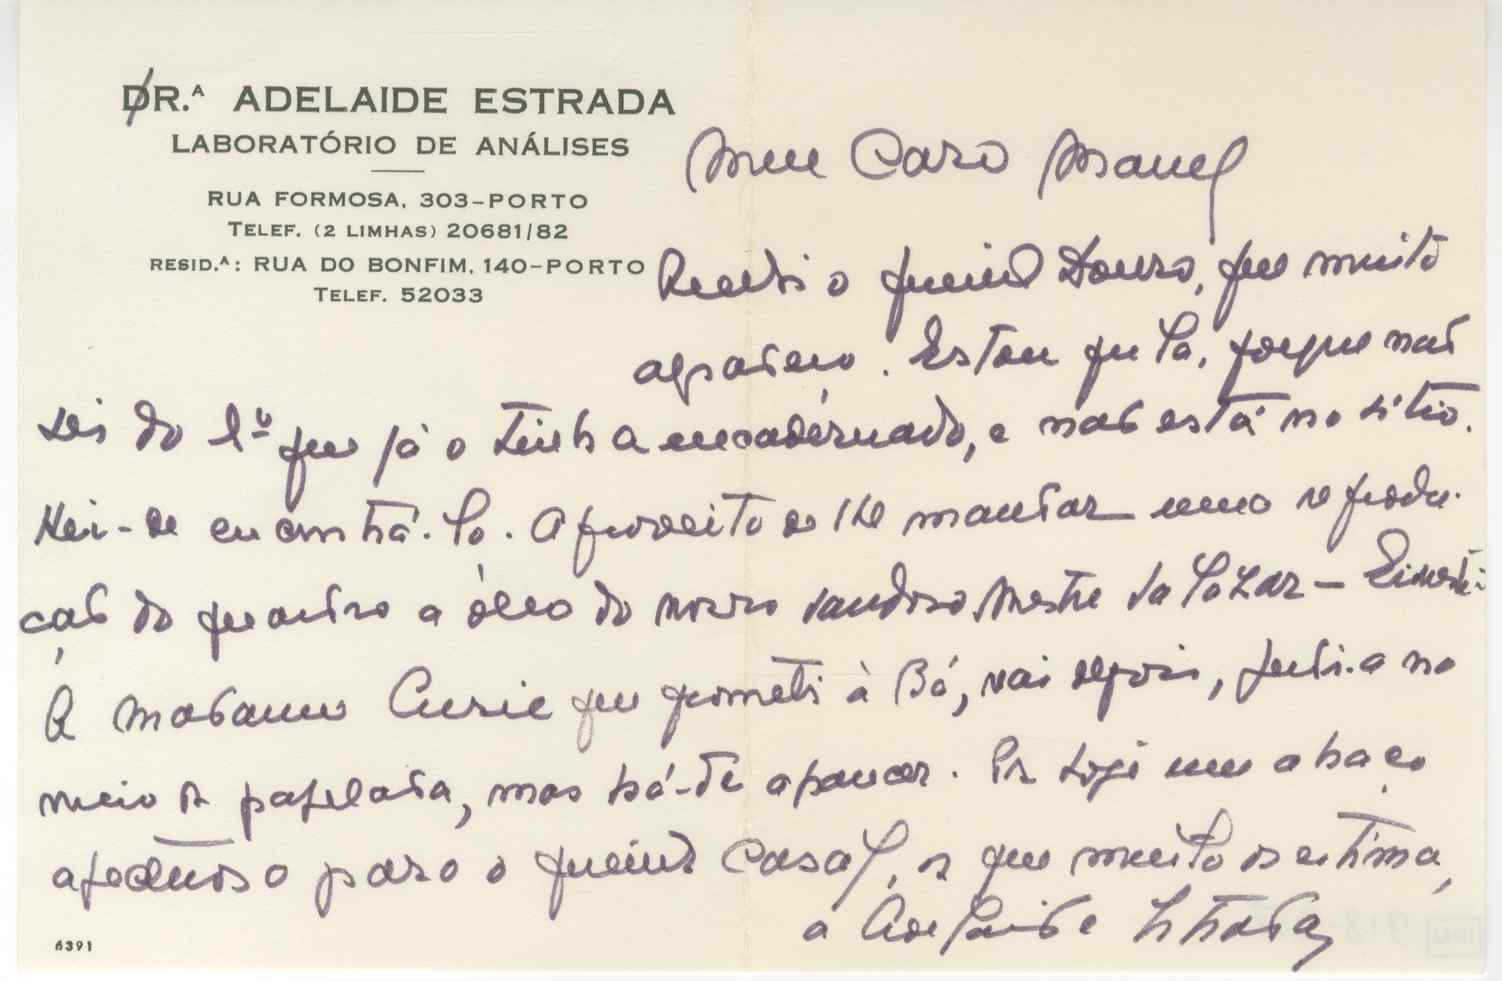 DR.ª ADELAIDE ESTRADA
LABORATÓRIO DE ANÁLISES
RUA FORMOSA, 303-PORTO
TELEF. (2 LIMHAS) 20681/82
RESID.ª: RUA DO BONFIM, 140-PORTO
TELEF. 52033
Meu Caro Manel
Recebi o querido Douro, que muito
agradeço. Estou gu la, porque não
sei do 1º que já o tinha encadernado, e não está no sitio.
Hei-de encontrá-lo. Aproveito de lhe mandar uma reprodu-
ção do quadro a óleo do nosso saudoso Mestre Salazar - Einstein.
A Madame Curie que prometi à Bó, vai depois, perdi-a no
meio da papelada, mas há-de aparecer. Por hoje um abraço
afectuoso para o querido Casal, da que muito os estima,
a Adelaide Estrada
6391